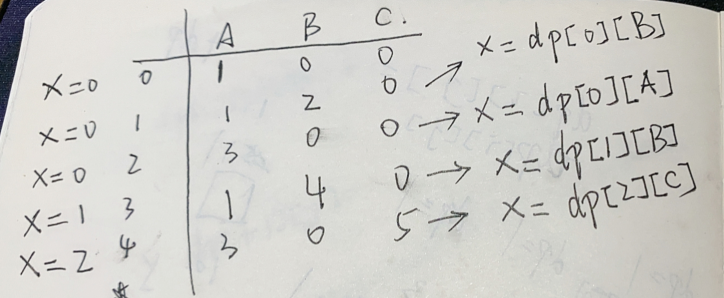 A B C.
x=0 0 1 0 0
x=0 1 1 2 0 → x= dp[0][B]
x=0 2 3 0 0 → x= dp[0][A]
x=1 3 1 4 0 → x= dp[1][B]
x=2 4 3 0 5 → x= dp[2][C]